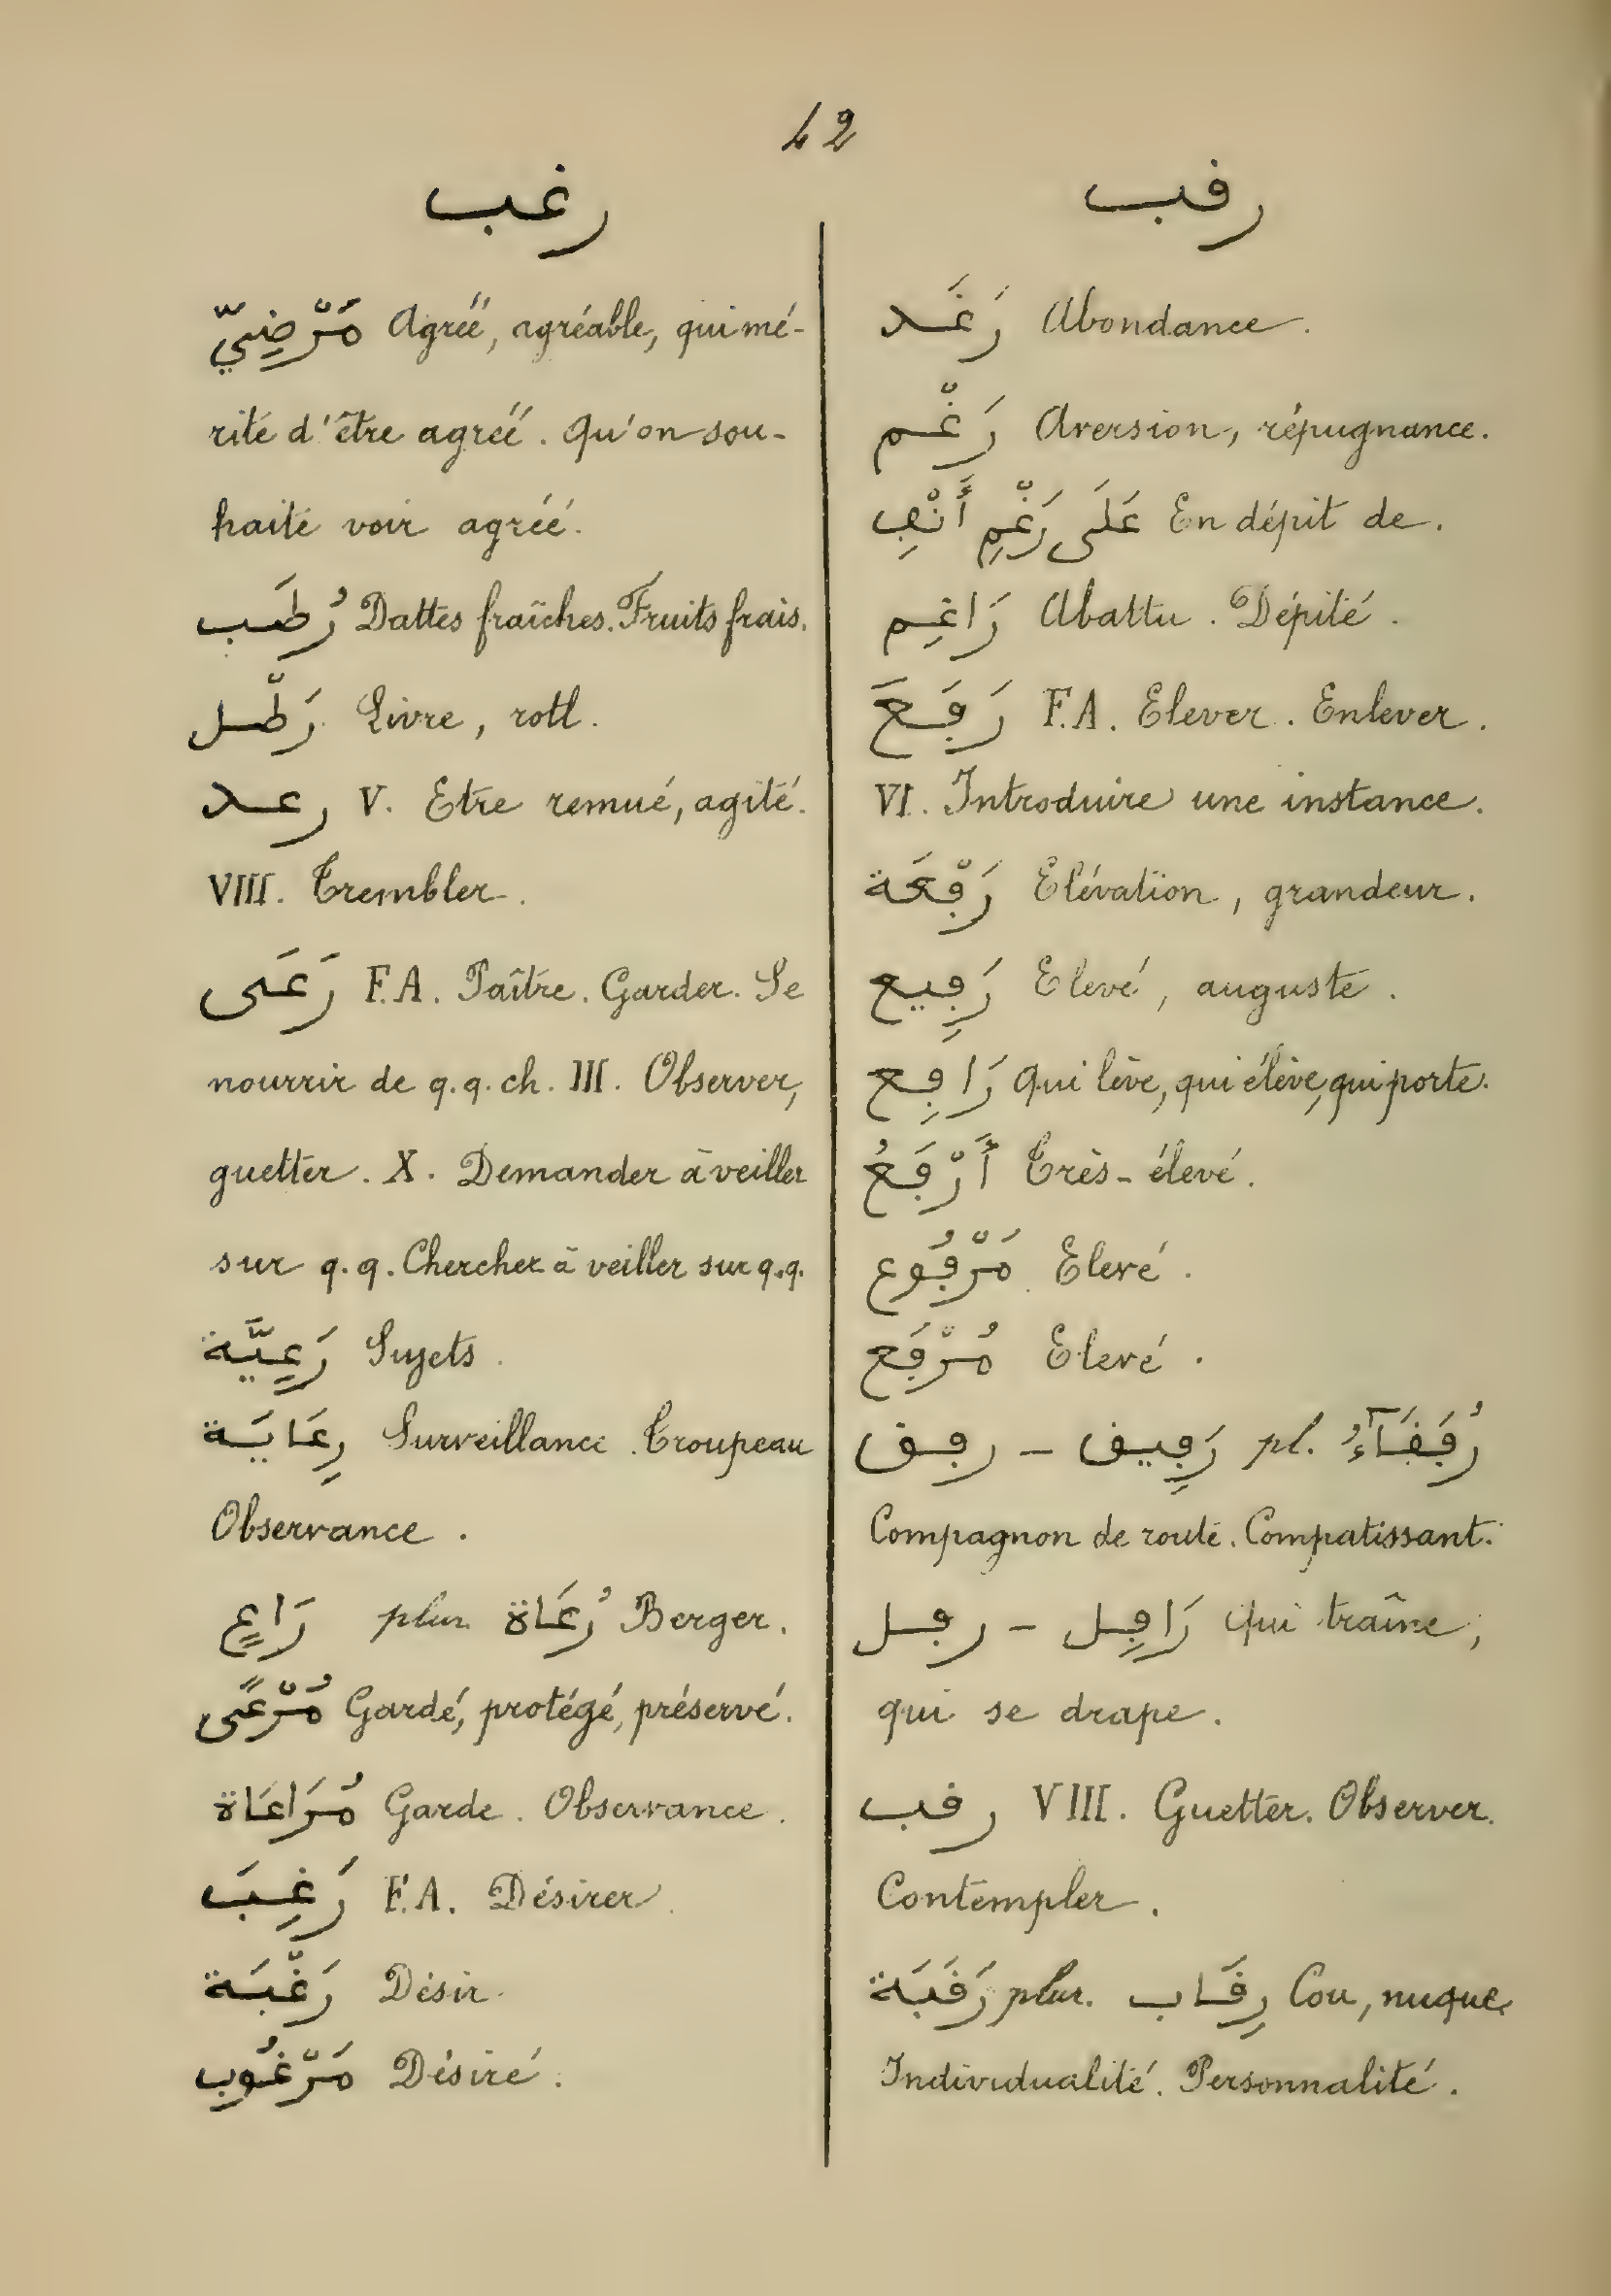 42
رغب
مَرْضِيّ Agréé, agréable, qui mé-
rite d'être agréé. Qu'on sou-
haite voir agréé.
رُطَب Dattes fraîches. Fruits frais.
رَطْل Livre, rotl.
رعد V. Etre remué, agité.
VIII. Trembler.
رَعَى F.A. Paître. Garder. Se
nourrir de q.q. ch. III. Observer,
guetter. X. Demander à veiller
sur q.q. Chercher à veiller sur q.q.
رَعِيَّة Sujets.
رِعَايَة Surveillance. Troupeau
Observance.
رَاعٍ plur. رُعَاة Berger.
مُرْعًى Gardé, protégé, préservé.
مُرَاعَاة Garde. Observance.
رَغِبَ F.A. Désirer.
رَغْبَة Désir.
مَرْغُوب Désiré.
رقب
رَغَد Abondance.
رَغْم Aversion, répugnance.
عَلَى رَغْمِ أَنْفِ En dépit de.
رَاغِم Abattu. Dépité.
رَفَعَ F.A. Elever. Enlever.
VI. Introduire une instance.
رَفْعَة Elévation, grandeur.
رَفِيع Elevé, auguste.
رَافِع Qui lève, qui élève, qui porte.
أَرْفَعُ Très-élevé.
مَرْفُوع Elevé.
مُرْفَع Elevé.
رفق – رَفِيق pl. رُفَقَآءُ
Compagnon de route. Compatissant.
رفل – رَافِل Qui traîne,
qui se drape.
رقب VIII. Guetter. Observer.
Contempler.
رَقَبَة plur. رِقَاب Cou, nuque.
Individualité. Personnalité.